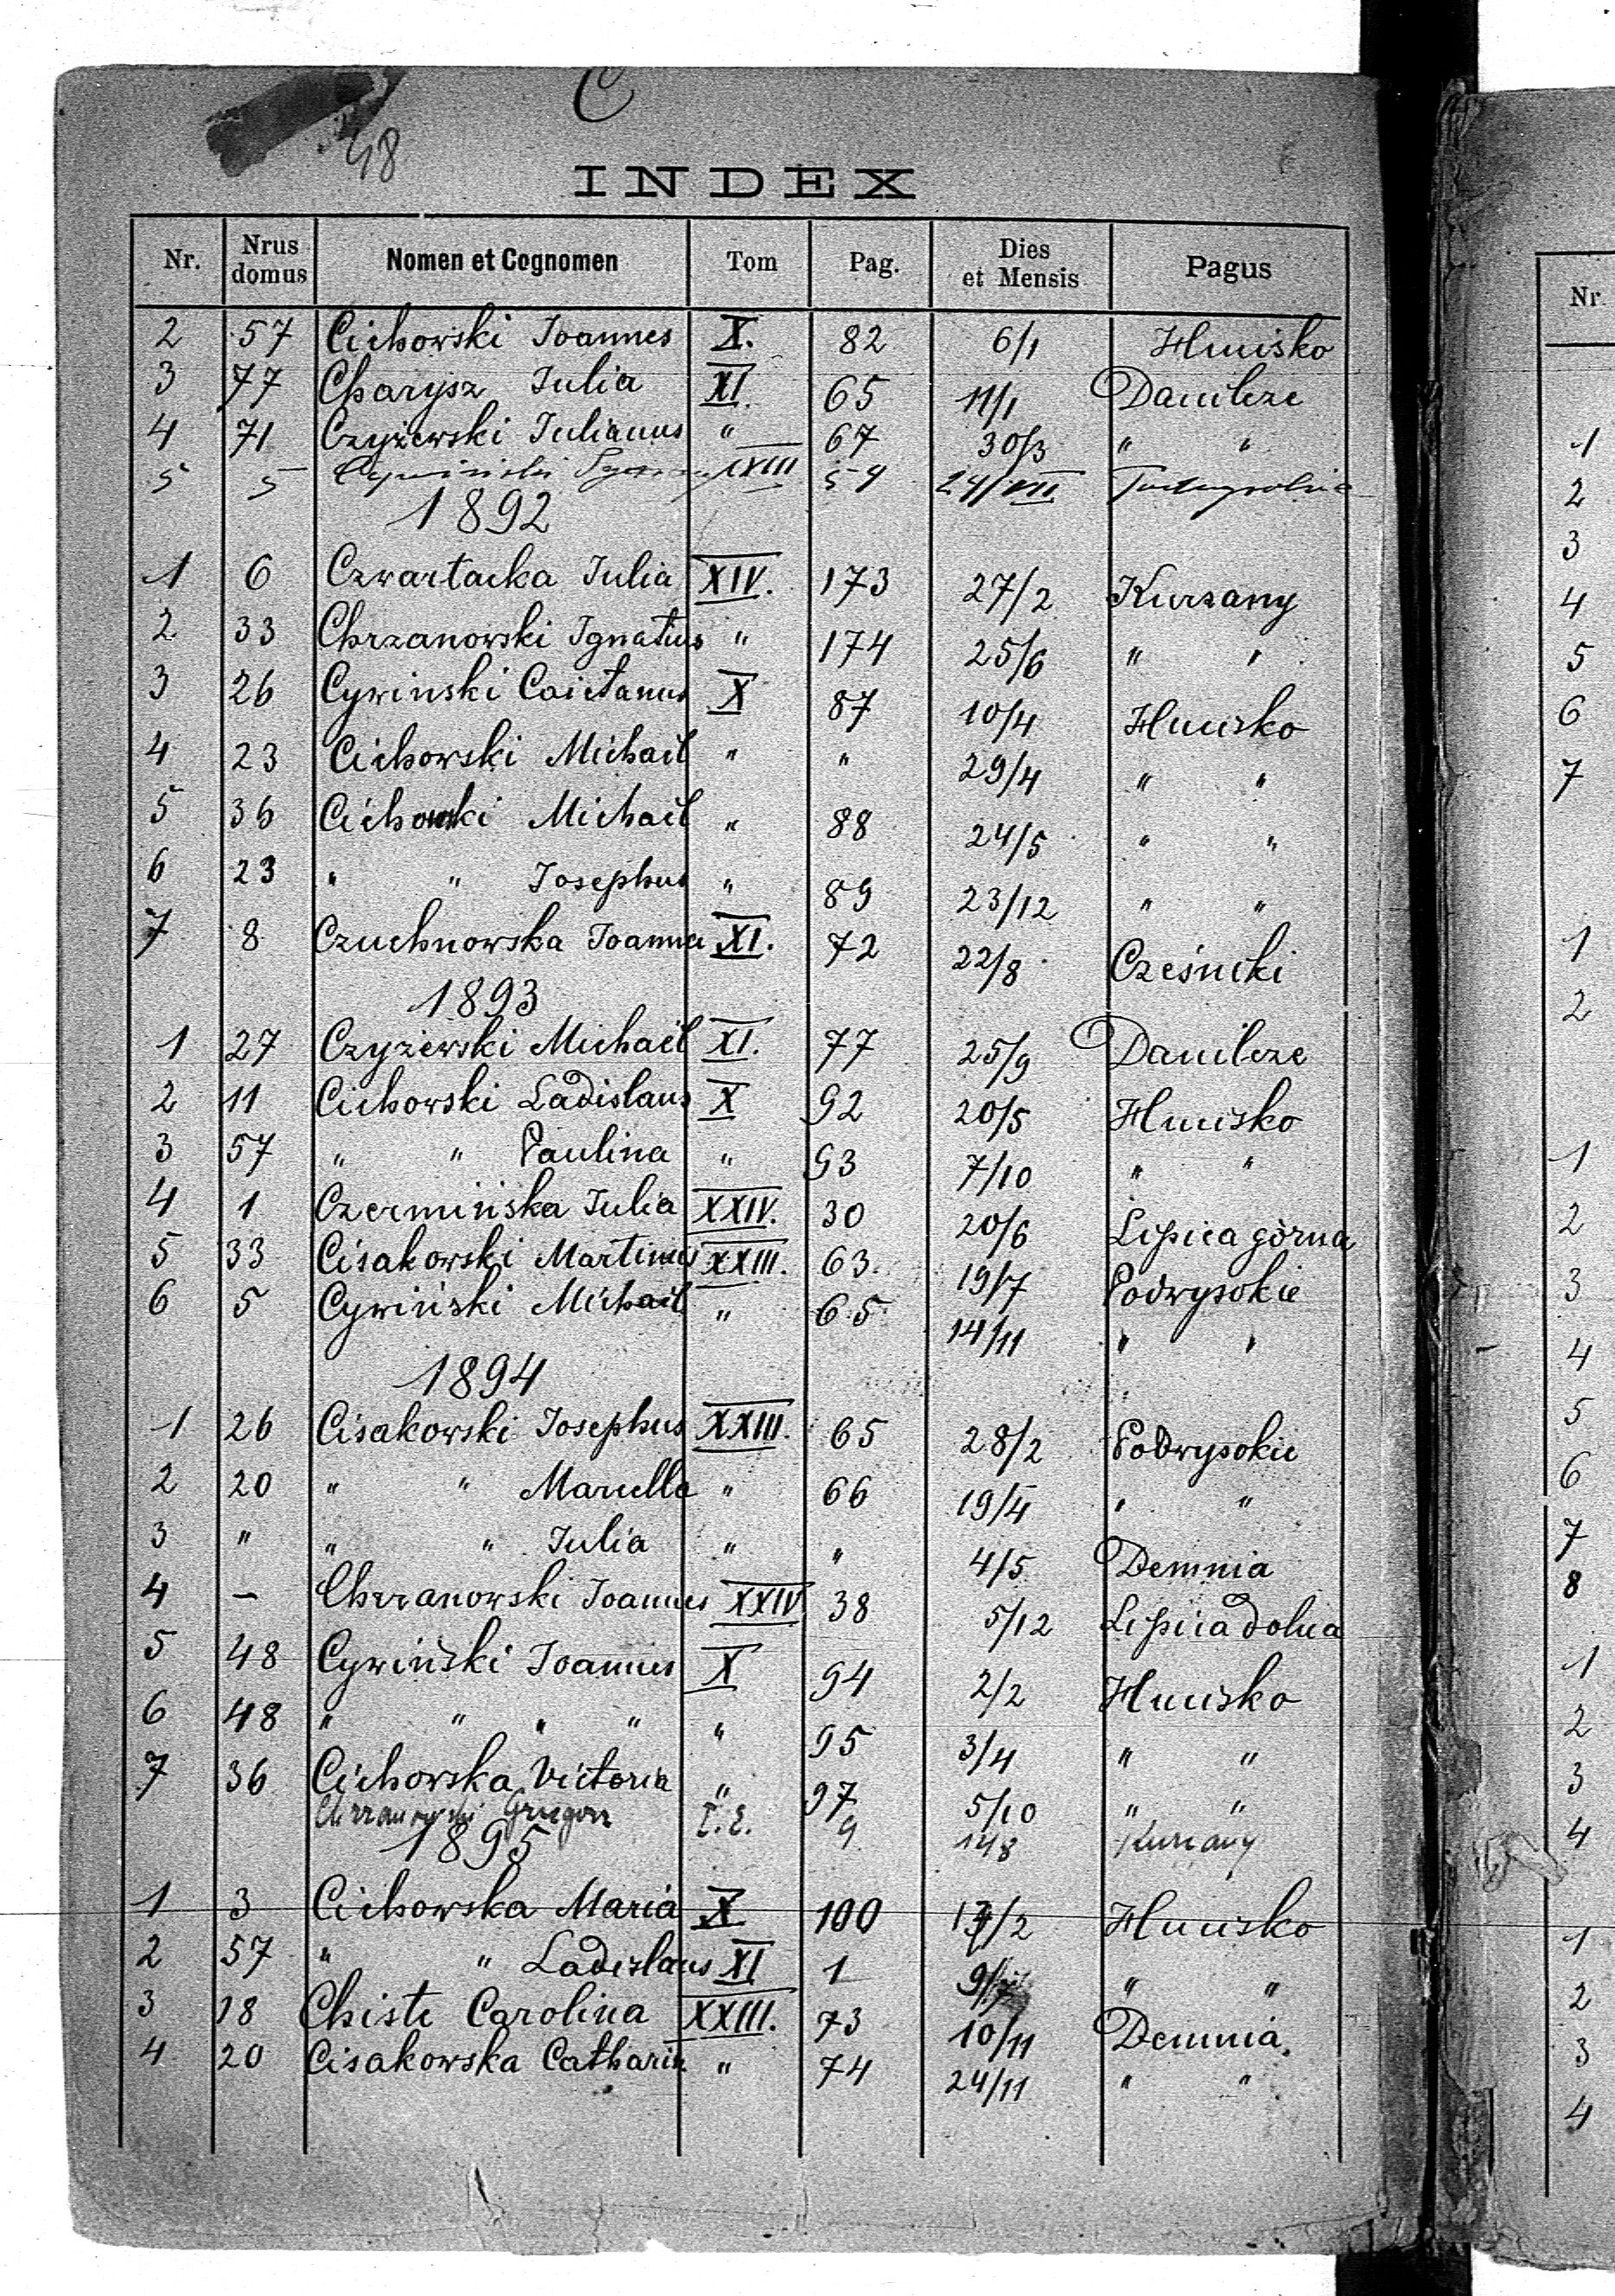 C
48
INDEX
Nr. Nrus domus Nomen et Cognomen Tom Pag. Dies et Mensis Pagus
2 57 Cichowski Joannes X. 82 6/1 Hnuisko
3 77 Charysz Julia XI. 65 11/1 Danilcze
4 71 Czyżewski Julianus " 67 30/3 " "
5 5 Cywiński XXIII 54 24/VIII
1892
1 6 Czwartacka Julia XIV. 173 27/2 Kurzany
2 33 Chrzanowski Ignatius " 174 25/6 " "
3 26 Cywinski Caietanus X 87 10/4 Hnuisko
4 23 Cichowski Michael " " 29/4 " "
5 36 Cichowski Michael " 88 24/5 " "
6 23 " " Josephus " 89 23/12 " "
7 8 Czuchnowska Joanna XI. 72 22/8 Cześniki
1893
1 27 Czyżewski Michael XI. 77 25/9 Danilcze
2 11 Cichowski Ladislaus X 92 20/5 Hnuisko
3 57 " " Paulina " 93 7/10 " "
4 1 Czermińska Julia XXIV. 30 20/6 Lipica górna
5 33 Cisakowski Martinus XXIII. 63 19/7 Podwysokie
6 5 Cywiński Michael " 65 14/11 " "
1894
1 26 Cisakowski Josephus XXIII. 65 28/2 Podwysokie
2 20 " " Marcella " 66 19/4 " "
3 " " " Julia " " 4/5 Demnia
4 – Chrzanowski Joannes XXIV 38 5/12 Lipica dolna
5 48 Cywiński Joannes X 94 2/2 Hnuisko
6 48 " " " " " 95 3/4 " "
7 36 Cichowska Victoria " 97 5/10 " "
Chrzanowski Gregorz 9 Kurzany
1895
1 3 Cichowska Maria X 100 /2 Hnuisko
2 57 " " Ladislaus XI 1 9/ " "
3 18 Chiste Carolina XXIII. 73 10/11 Demnia
4 20 Cisakowska Catharin " 74 24/11 " "
Nr.
1
2
3
4
5
6
7
1
2
1
2
3
4
5
6
7
8
1
2
3
4
1
2
3
4